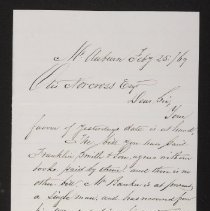 Mt Auburn Feby 25./67
Otis Norcross Esq
Dear Sir,
Your
favor of yesterdays date is at hand,
The bill you have paid
Franklin Smith & Son, agrees with our
books, paid by them, and there is no
other bill, Mr Barker is at present,
a single man, and has removed from